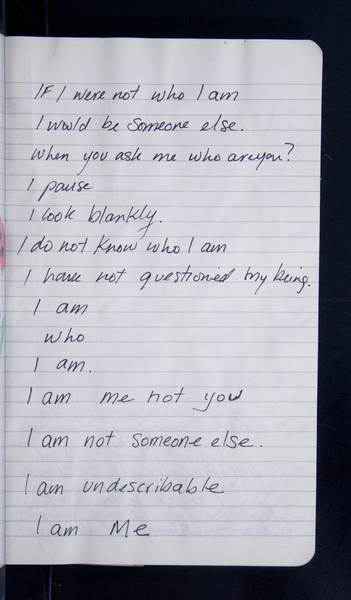 If I were not who I am
I would be someone else.
When you ask me who are you?
I pause
I look blankly.
I do not know who I am
I have not questioned my being.
I am
who
I am.
I am me not you
I am not someone else.
I am undescribable
I am Me